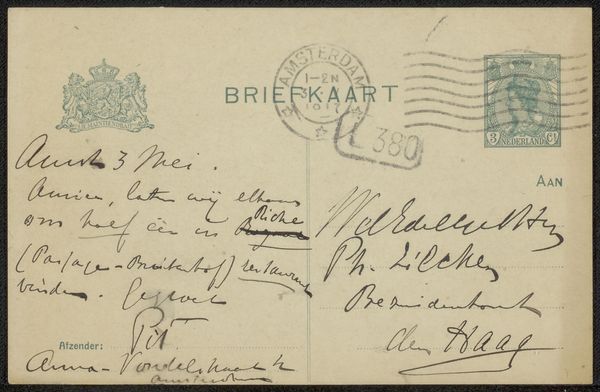 AMSTERDAM
1-2N
BRIEFKAART
L 380
JE MAINTIENDRAI
3 CT
NEDERLAND
AAN
Amst 3 Mei.
Amice, laten wij elkaar
om half één in Riche
(Passage-Buitenhof) restaurant
vinden. Gegroet
Pit
Afzender:
Anna-Vondelstraat
Amsterdam
WelEdelGeb Heer
Ph. Zilcken
Bezuidenhout
den Haag